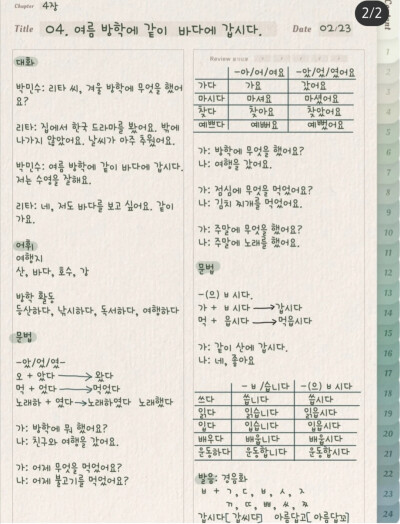 2/2
Chapter 4장
Title 04. 여름 방학에 같이 바다에 갑시다.
Date 02/23
대화
박민수: 리타 씨, 겨울 방학에 무엇을 했어
요?
리타: 집에서 한국 드라마를 봤어요. 밖에
나가지 않았어요. 날씨가 아주 추웠어요.
박민수: 여름 방학에 같이 바다에 갑시다.
저는 수영을 잘해요.
리타: 네, 저도 바다를 보고 싶어요. 같이
가요.
어휘
여행지
산, 바다, 호수, 강
방학 활동
등산하다, 낚시하다, 독서하다, 여행하다
문법
-았/었/였-
오 + 았다 → 왔다
먹 + 었다 → 먹었다
노래하 + 였다 → 노래하였다 노래했다
가: 방학에 뭐 했어요?
나: 친구와 여행을 갔어요.
가: 어제 무엇을 먹었어요?
나: 어제 불고기를 먹었어요?
Review
-아/어/여요 -았/었/였어요
가다 가요 갔어요
마시다 마셔요 마셨어요
찾다 찾아요 찾았어요
예쁘다 예뻐요 예뻤어요
가: 방학에 무엇을 했어요?
나: 여행을 갔어요.
가: 점심에 무엇을 먹었어요?
나: 김치 찌개를 먹었어요.
가: 주말에 무엇을 했어요?
나: 주말에 노래를 했어요.
문법
-(으)ㅂ시다.
가 + ㅂ시다 → 갑시다
먹 + 읍시다 → 먹읍시다
가: 같이 산에 갑시다.
나: 네, 좋아요
-ㅂ/습니다 -(으)ㅂ시다
쓰다 씁니다 씁시다
읽다 읽습니다 읽읍시다
입다 입습니다 입읍시다
배우다 배웁니다 배웁시다
운동하다 운동합니다 운동합시다
발음: 경음화
ㅂ + ㄱ, ㄷ, ㅂ, ㅅ, ㅈ
ㄲ, ㄸ, ㅃ, ㅆ, ㅉ
갑시다[ 갑씨다] 아름답고[ 아름답꼬]
1
2
3
4
5
6
7
8
9
10
11
12
13
14
15
16
17
18
19
20
21
22
23
24